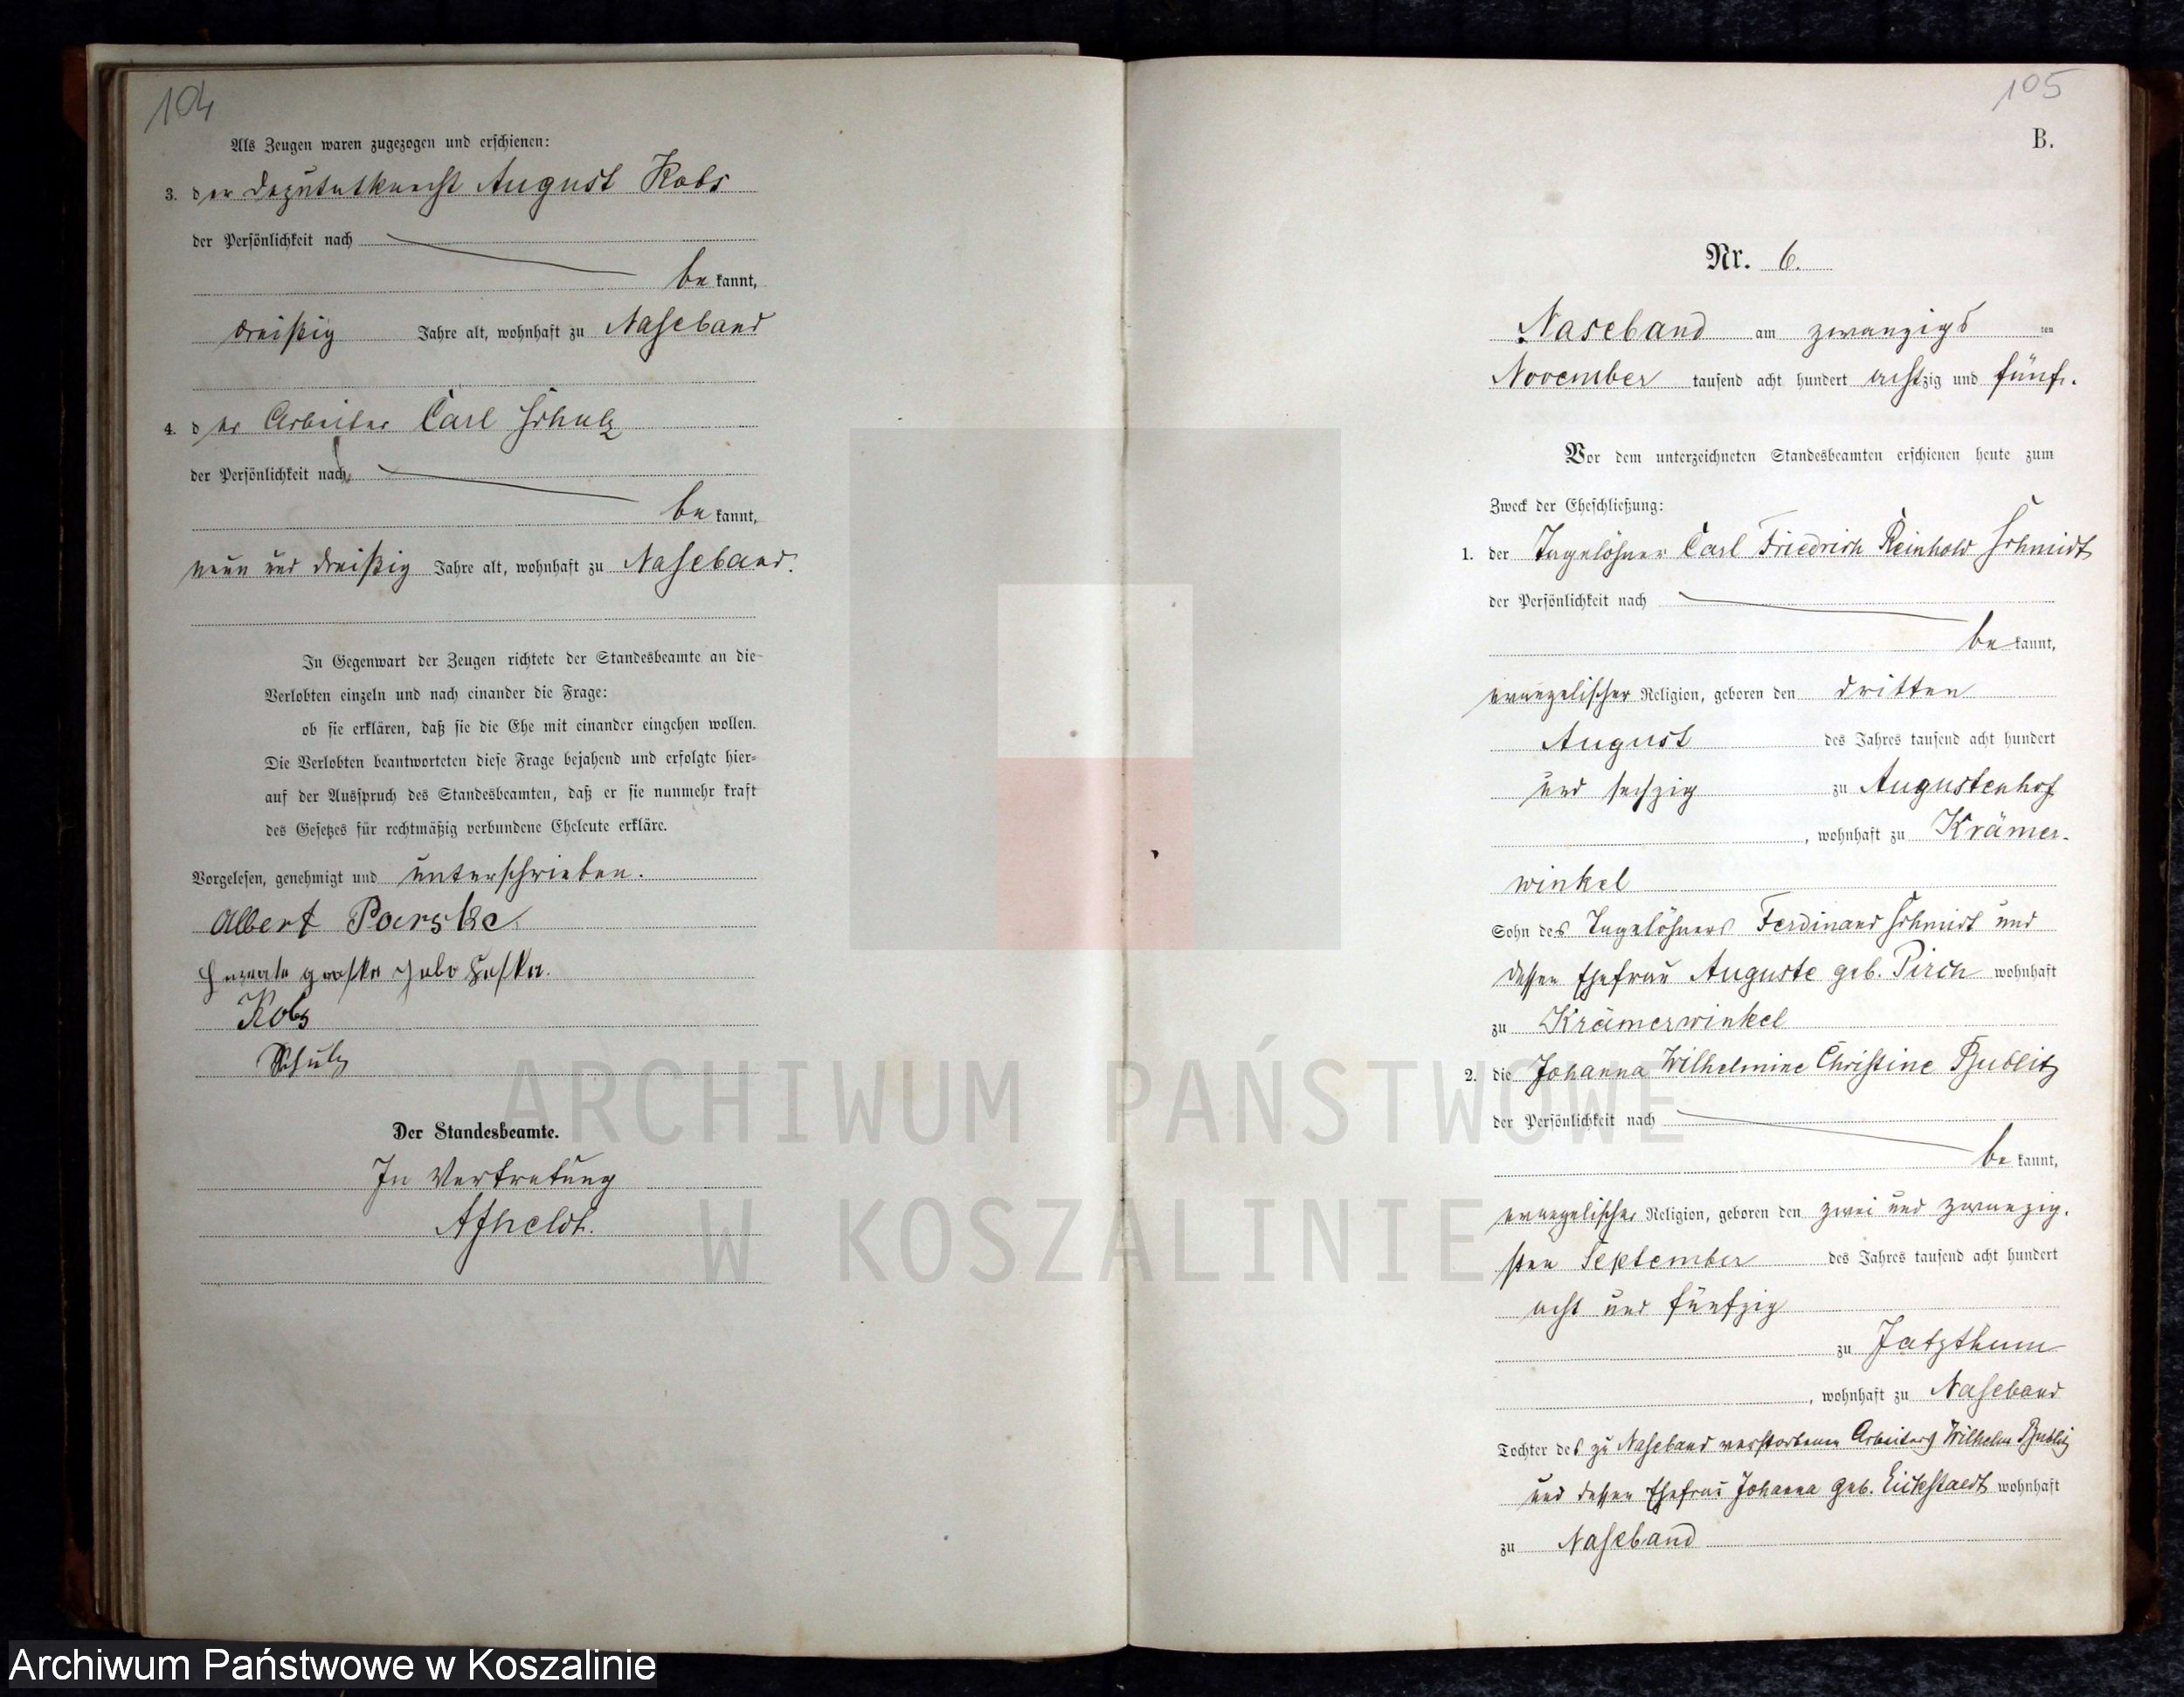 104
Als Zeugen waren zugezogen und erschienen:
3. der Deputatknecht August Kobs
der Persönlichkeit nach
be kannt,
dreißig Jahre alt, wohnhaft zu Naseband
4. der Arbeiter Carl Schulz
der Persönlichkeit nach
be kannt,
neun und dreißig Jahre alt, wohnhaft zu Naseband.
In Gegenwart der Zeugen richtete der Standesbeamte an die
Verlobten einzeln und nach einander die Frage:
ob sie erklären, daß sie die Ehe mit einander eingehen wollen.
Die Verlobten beantworteten diese Frage bejahend und erfolgte hier-
auf der Ausspruch des Standesbeamten, daß er sie nunmehr kraft
des Gesetzes für rechtmäßig verbundene Eheleute erkläre.
Vorgelesen, genehmigt und unterschrieben.
Albert
Kobs
Schulz
Der Standesbeamte.
In Vertretung
Affheldt.
105
B.
Nr. 6.
Naseband am zwanzigs ten
November tausend acht hundert achtzig und fünf.
Vor dem unterzeichneten Standesbeamten erschienen heute zum
Zweck der Eheschließung:
1. der Tagelöhner Carl Friedrich Reinhold Schmidt
der Persönlichkeit nach
be kannt,
evangelischer Religion, geboren den dritten
August des Jahres tausend acht hundert
und sechzig zu Augustenhof
, wohnhaft zu Krämer-
winkel
Sohn des Tagelöhners Ferdinand Schmidt und
dessen Ehefrau Auguste geb. Pirch wohnhaft
zu Krämerwinkel
2. die Johanna Wilhelmine Christine Bublitz
der Persönlichkeit nach
be kannt,
evangelischer Religion, geboren den zwei und zwanzig-
sten September des Jahres tausend acht hundert
acht und fünfzig
zu Jatzthum
, wohnhaft zu Naseband
Tochter des zu Naseband verstorbenen Arbeiters Wilhelm Bublitz
und dessen Ehefrau Johanna geb. Eickstaedt wohnhaft
zu Naseband
ARCHIWUM PAŃSTWOWE
W KOSZALINIE
Archiwum Państwowe w Koszalinie